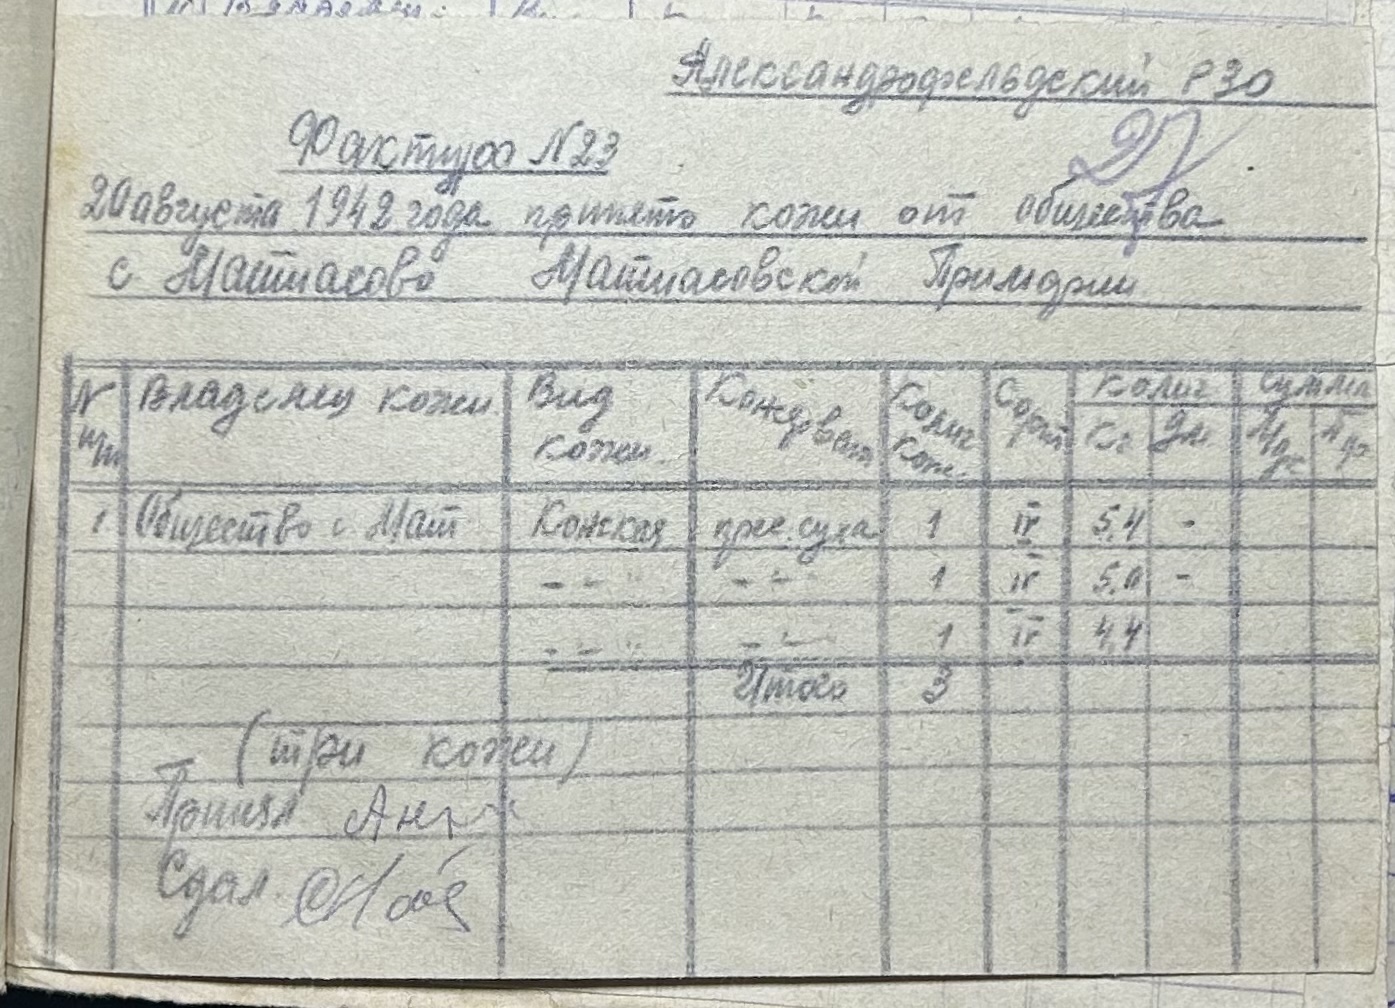 Александрофельдский РЗО
27
Фактура N 23
20 августа 1942 года принято кожи от общества
с Матиасово Матиасовской Примэрии
N п/п Владелец кожи Вид кожи Консерват Колич кож. Сорт Колич Сумма
Кг Дм
1 Общество с Мат Конская прес. суха 1 IV 5,4 -
- - " - " - 1 IV 5,0 -
- - " - " - 1 IV 4,4
Итого 3
(три кожи)
Принял
Сдал.